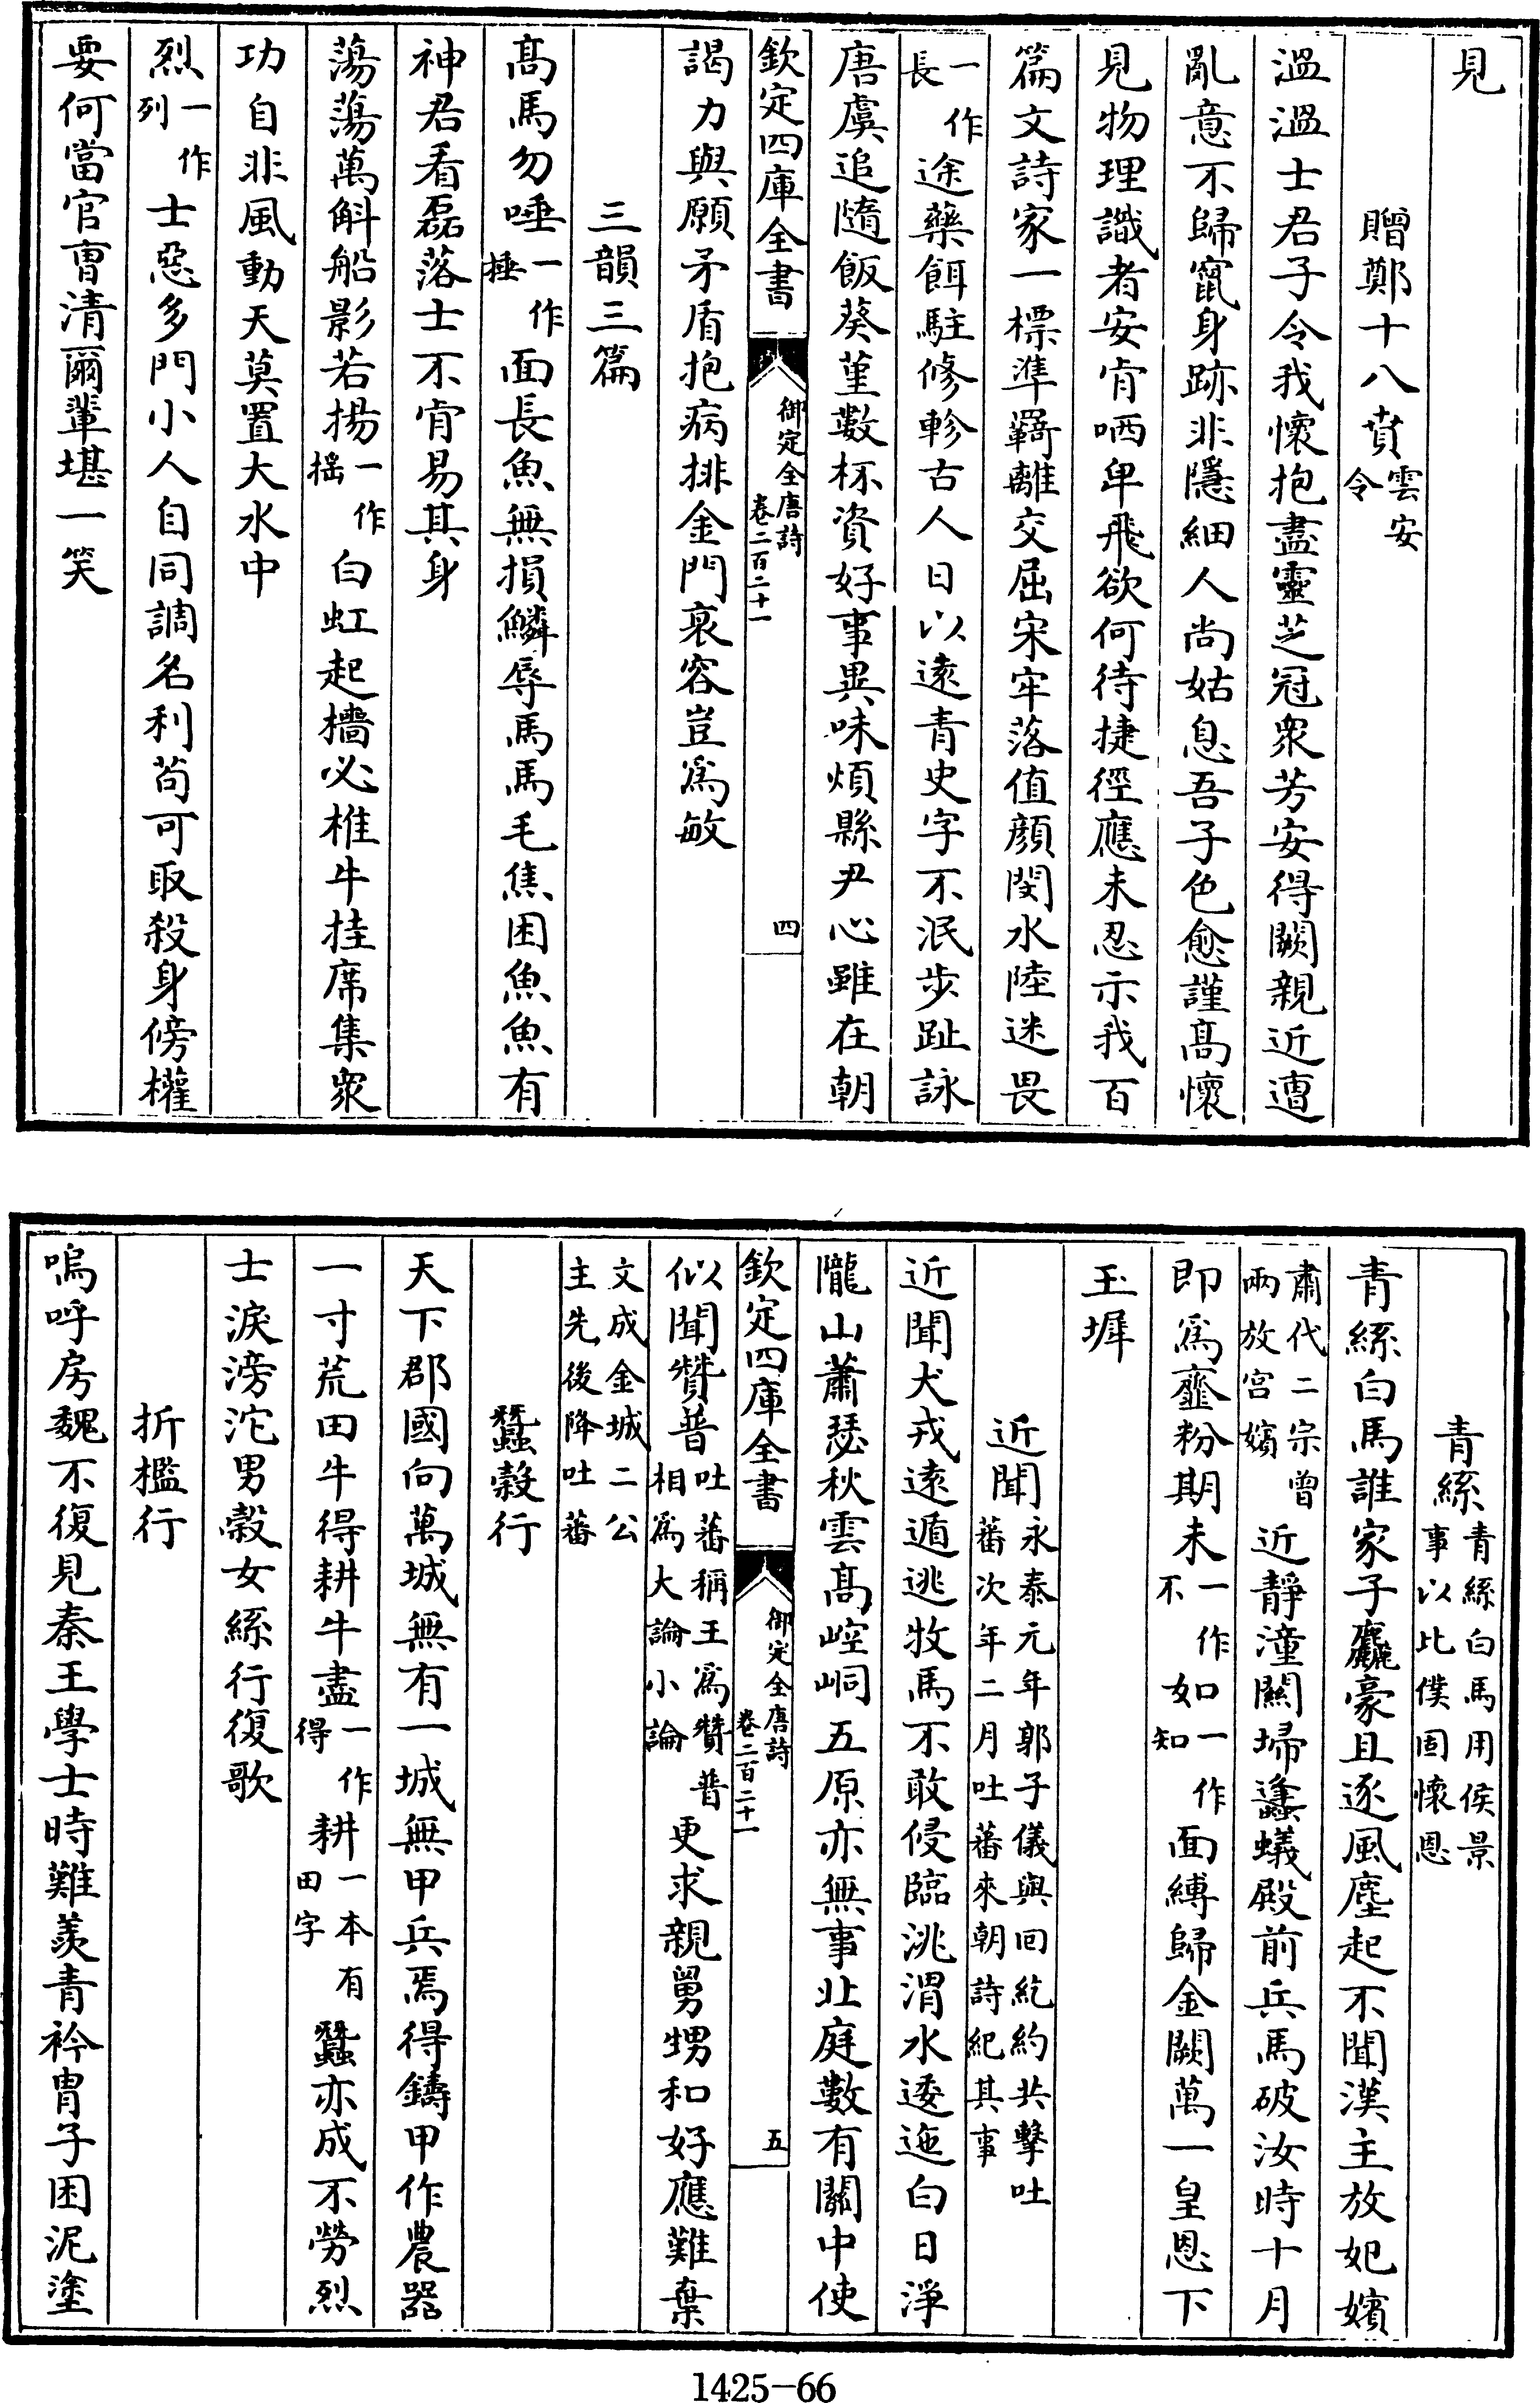 見
贈鄭十八賁雲安令
溫溫士君子令我懷抱盡靈芝冠衆芳安得闕親近遭
亂意不歸竄身跡非隱細人尚姑息吾子色愈謹高懷
見物理識者安肯哂卑飛欲何待捷徑應未忍示我百
篇文詩家一標準羇離交屈宋牢落值顏閔水陸迷畏
一作長途藥餌駐修軫古人日以遠青史字不泯步趾詠
唐虞追隨飯葵堇數杯資好事異味煩縣尹心雖在朝
欽定四庫全書
御定全唐詩
卷二百二十一
四
謁力與願矛盾抱病排金門衰容豈為敏
三韻三篇
高馬勿唾一作捶面長魚無損鱗辱馬馬毛焦困魚魚有
神君看磊落士不肯易其身
蕩蕩萬斛船影若揚一作搖白虹起檣必椎牛挂席集衆
功自非風動天莫置大水中
烈一作列士惡多門小人自同調名利苟可取殺身傍權
要何當官曹清爾輩堪一笑
青絲青絲白馬用侯景事以比僕固懷恩
青絲白馬誰家子麤豪且逐風塵起不聞漢主放妃嬪
肅代二宗曾兩放宮嬪近靜潼關埽蠭蟻殿前兵馬破汝時十月
即為虀粉期未一作不如一作知面縛歸金闕萬一皇恩下
玉墀
近聞永泰元年郭子儀與回紇約共擊吐蕃次年二月吐蕃來朝詩紀其事
近聞犬戎遠遁逃牧馬不敢侵臨洮渭水逶迤白日淨
隴山蕭瑟秋雲高崆峒五原亦無事北庭數有關中使
欽定四庫全書
御定全唐詩
卷二百二十一
五
似聞贊普吐蕃稱王為贊普相為大論小論更求親舅甥和好應難棄
文成金城二公主先後降吐蕃
蠶穀行
天下郡國向萬城無有一城無甲兵焉得鑄甲作農器
一寸荒田牛得耕牛盡一作得耕一本有田字蠶亦成不勞烈
士淚滂沱男穀女絲行復歌
折檻行
嗚呼房魏不復見秦王學士時難羨青衿胄子困泥塗
1425-66